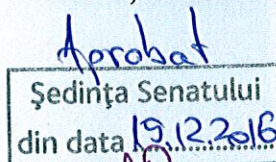 Aprobat
Ședința Senatului
din data 19.12.2016